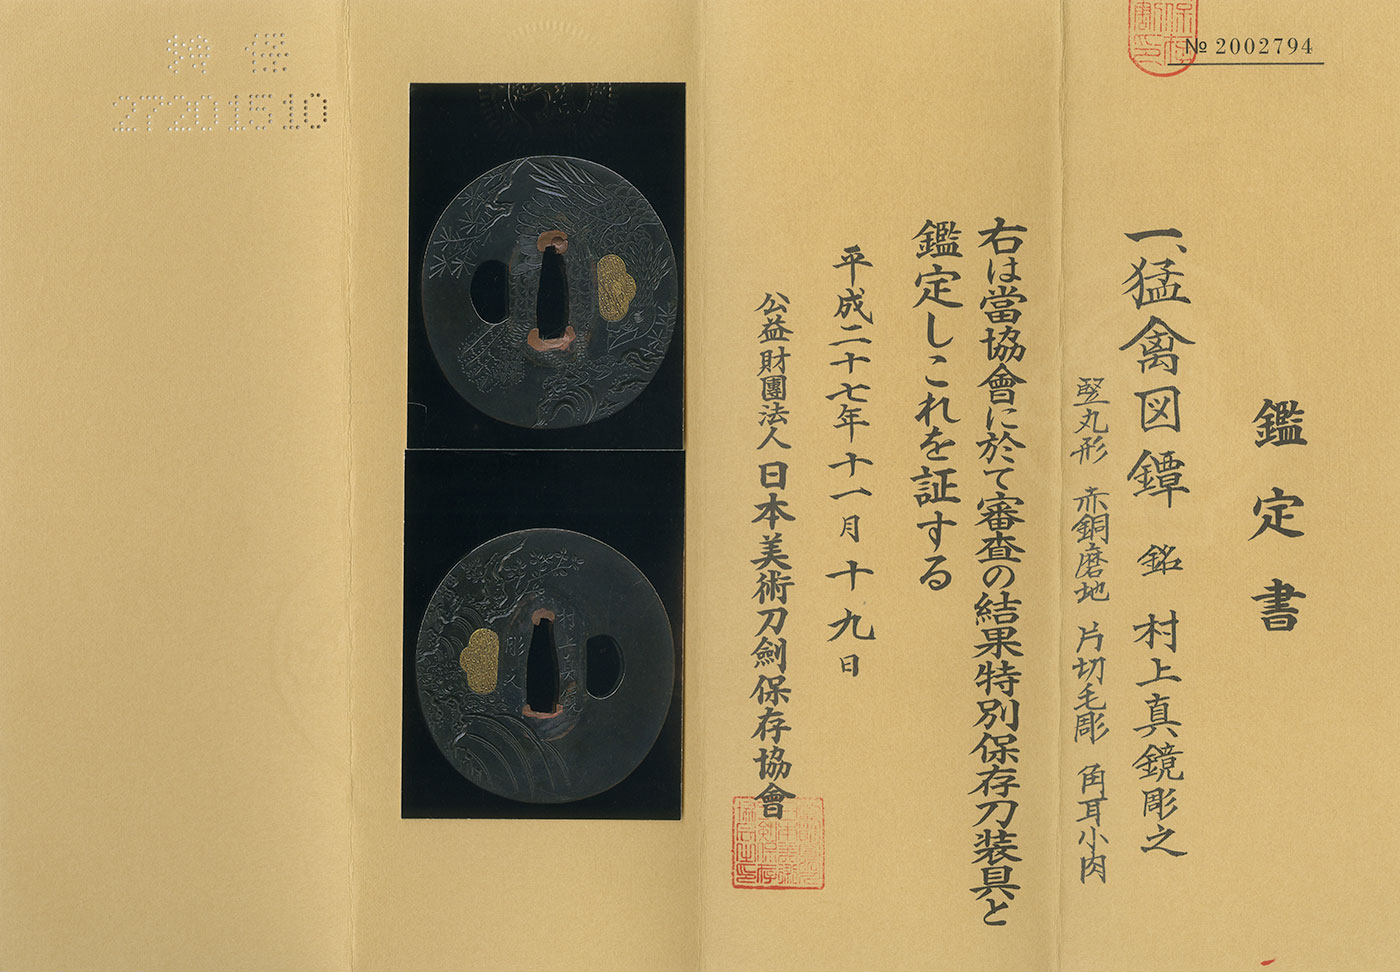 № 2002794
鑑定書
一、猛禽図鐔 銘 村上真鏡彫之
竪丸形 赤銅磨地 片切毛彫 角耳小肉
右は當協會に於て審査の結果特別保存刀装具と
鑑定しこれを証する
平成二十七年十一月十九日
公益財團法人 日本美術刀劍保存協會
村上真鏡
彫之
特保
27201510